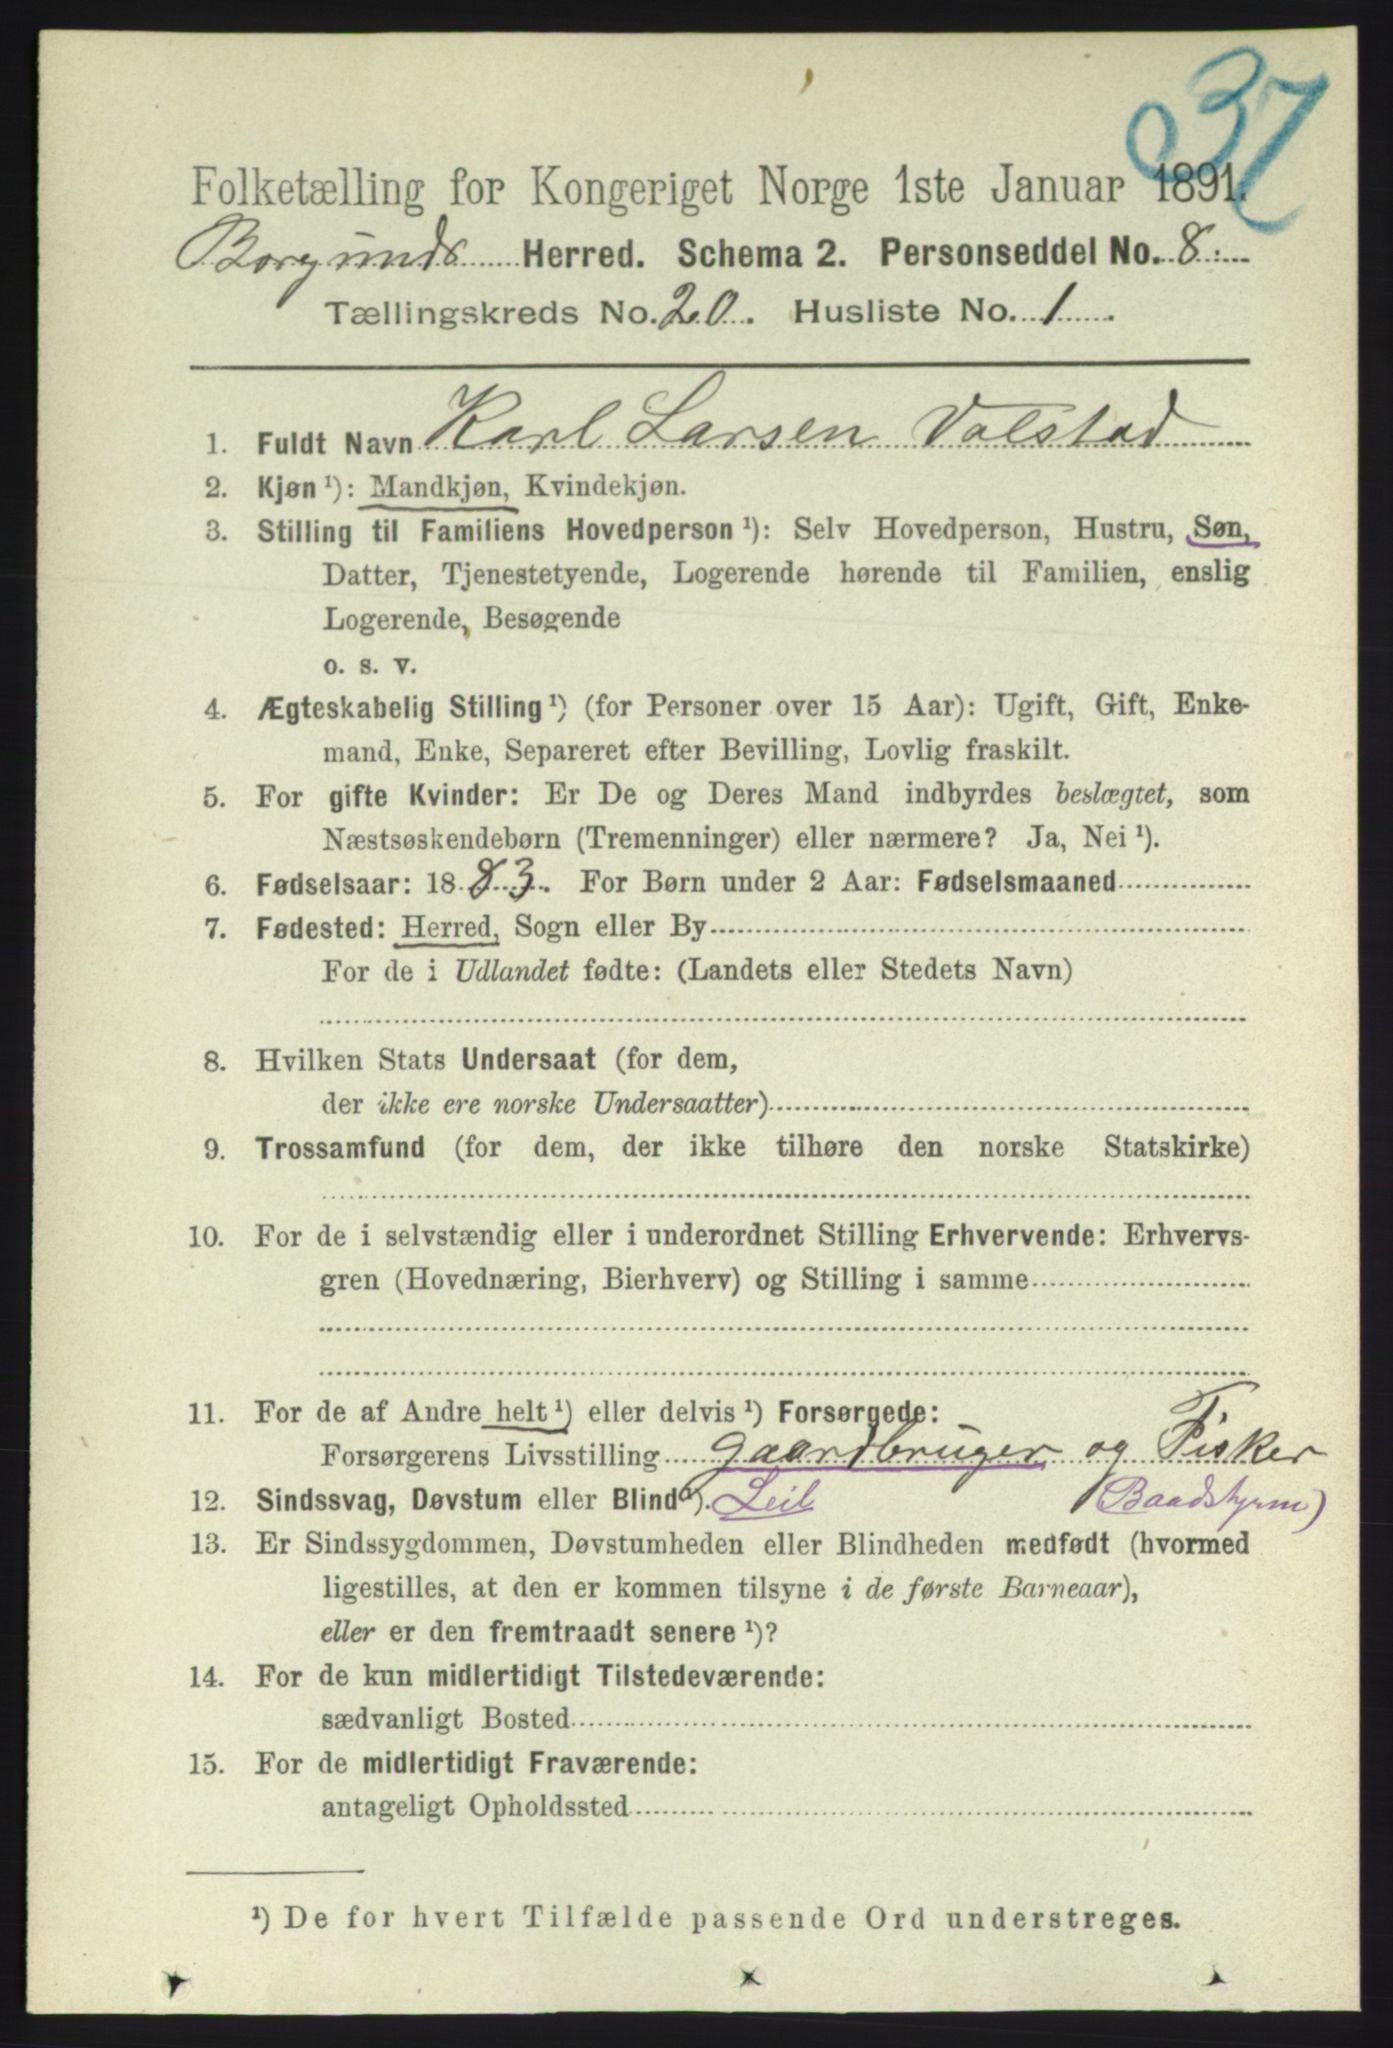 37
Folketælling for Kongeriget Norge 1ste Januar 1891.
Borgunds Herred. Schema 2. Personseddel No. 8.
Tællingskreds No. 20. Husliste No. 1.
1. Fuldt Navn Karl Larsen Valstad
2. Kjøn ¹): Mandkjøn, Kvindekjøn.
3. Stilling til Familiens Hovedperson ¹): Selv Hovedperson, Hustru, Søn,
Datter, Tjenestetyende, Logerende hørende til Familien, enslig
Logerende, Besøgende
o. s. v.
4. Ægteskabelig Stilling ¹) (for Personer over 15 Aar): Ugift, Gift, Enke-
mand, Enke, Separeret efter Bevilling, Lovlig fraskilt.
5. For gifte Kvinder: Er De og Deres Mand indbyrdes beslægtet, som
Næstsøskendebørn (Tremenninger) eller nærmere? Ja, Nei ¹).
6. Fødselsaar: 1883. For Børn under 2 Aar: Fødselsmaaned
7. Fødested: Herred, Sogn eller By
For de i Udlandet fødte: (Landets eller Stedets Navn)
8. Hvilken Stats Undersaat (for dem,
der ikke ere norske Undersaatter)
9. Trossamfund (for dem, der ikke tilhøre den norske Statskirke)
10. For de i selvstændig eller i underordnet Stilling Erhvervende: Erhvervs-
gren (Hovednæring, Bierhverv) og Stilling i samme
11. For de af Andre helt ¹) eller delvis ¹) Forsørgede:
Forsørgerens Livsstilling gaardbruger og Fisker
12. Sindssvag, Døvstum eller Blind ¹). Leil (Baadstyrm)
13. Er Sindssygdommen, Døvstumheden eller Blindheden medfødt (hvormed
ligestilles, at den er kommen tilsyne i de første Barneaar),
eller er den fremtraadt senere ¹)?
14. For de kun midlertidigt Tilstedeværende:
sædvanligt Bosted
15. For de midlertidigt Fraværende:
antageligt Opholdssted
¹) De for hvert Tilfælde passende Ord understreges.